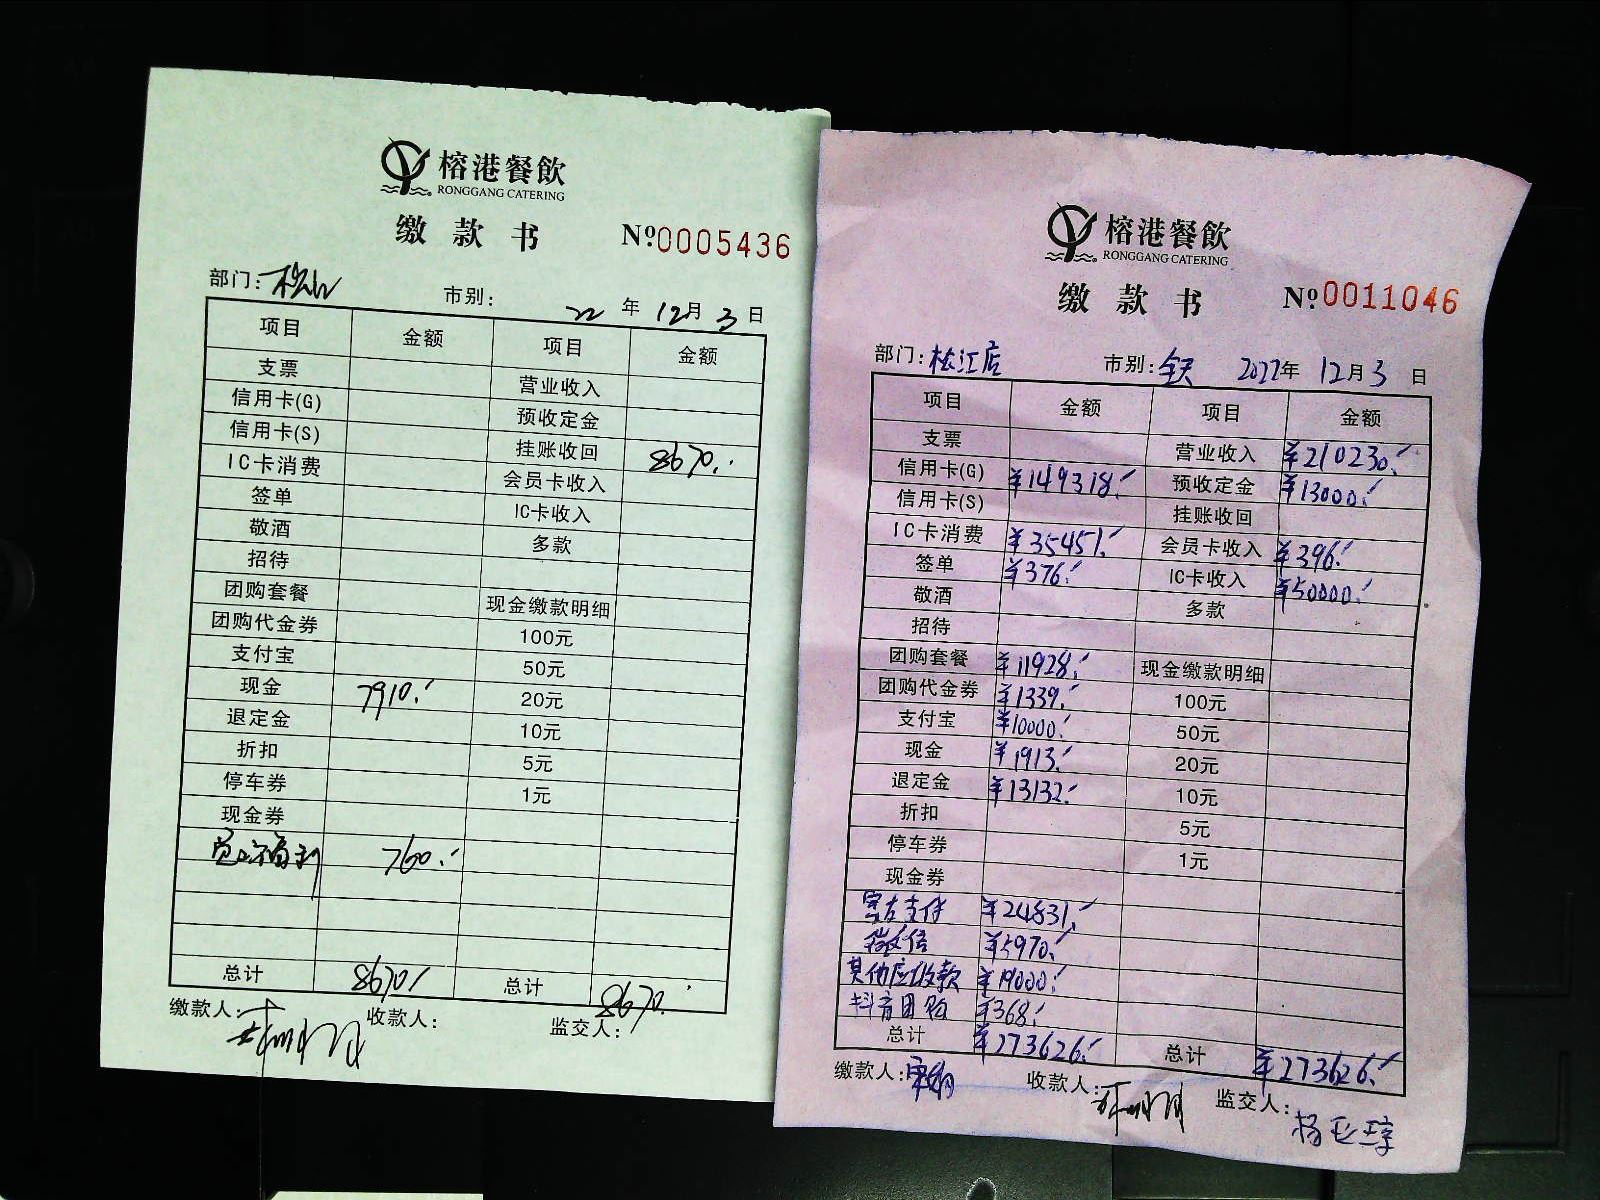 榕港餐飲
RONGGANG CATERING
缴款书 №0005436
部门: 松江 市别: 22年12月3日
项目 金额 项目 金额
支票 营业收入
信用卡(G) 预收定金
信用卡(S) 挂账收回 8670.-
IC卡消费 会员卡收入
签单 IC卡收入
敬酒 多款
招待
团购套餐 现金缴款明细
团购代金券 100元
支付宝 50元
现金 7910.- 20元
退定金 10元
折扣 5元
停车券 1元
现金券
员工福利 760.-
总计 8670.- 总计 8670.-
缴款人: 收款人: 监交人:
榕港餐飲
RONGGANG CATERING
缴款书 №0011046
部门: 松江店 市别: 全天 2022年12月3日
项目 金额 项目 金额
支票 营业收入 ¥210230.-
信用卡(G) ¥149318.- 预收定金 ¥13000.-
信用卡(S) 挂账收回
IC卡消费 ¥35451.- 会员卡收入 ¥396.-
签单 ¥376.- IC卡收入 ¥50000.-
敬酒 多款
招待
团购套餐 ¥11928.- 现金缴款明细
团购代金券 ¥1339.- 100元
支付宝 ¥10000.- 50元
现金 ¥1913.- 20元
退定金 ¥13132.- 10元
折扣 5元
停车券 1元
现金券
支付 ¥24831.-
微信 ¥5970.-
其他应收款 ¥19000.-
抖音团购 ¥368.-
总计 ¥273626.- 总计 ¥273626.-
缴款人: 收款人: 监交人: